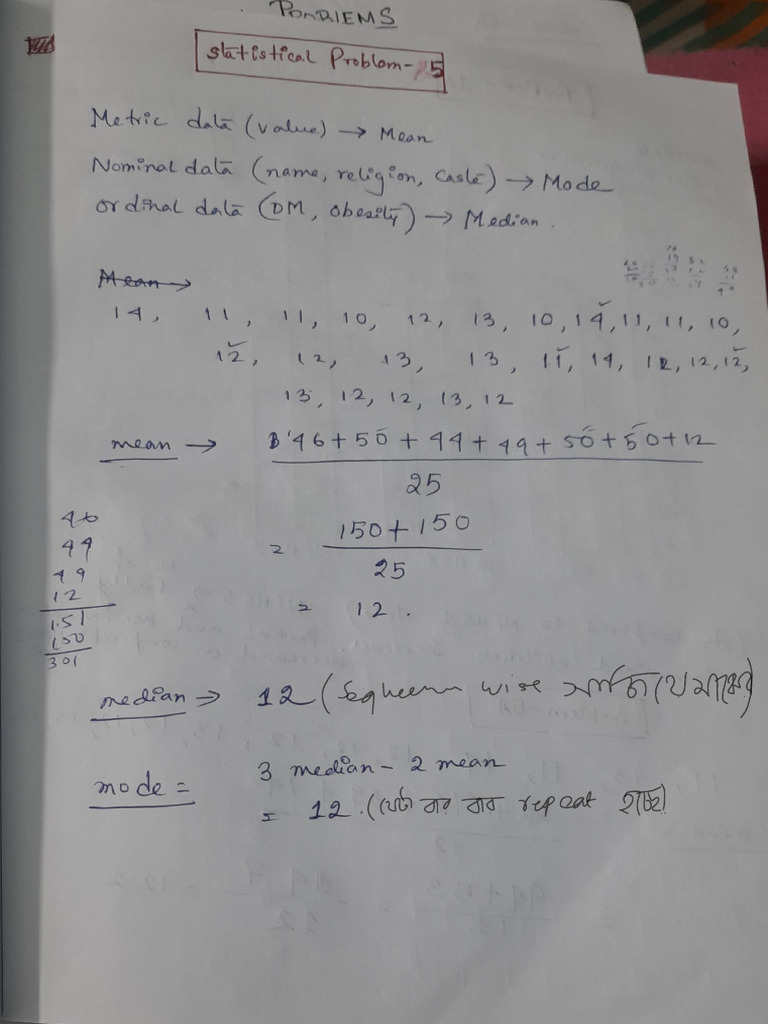 PROBLEMS
Statistical Problem-5
Metric data (value) → Mean
Nominal data (name, religion, caste) → Mode
ordinal data (DM, obesity) → Median.
Mean →
14, 11, 11, 10, 12, 13, 10, 14, 11, 11, 10,
12, 12, 13, 13, 11, 14, 12, 12, 12,
13, 12, 12, 13, 12
mean → 46 + 50 + 44 + 49 + 50 + 50 + 12
25
46
44
49
12
151
150
301
= 150 + 150
25
= 12.
median → 12 ( wise সাজিয়ে মাঝের)
mode = 3 median - 2 mean
= 12. (যেটা বার বার repeat হচ্ছে)